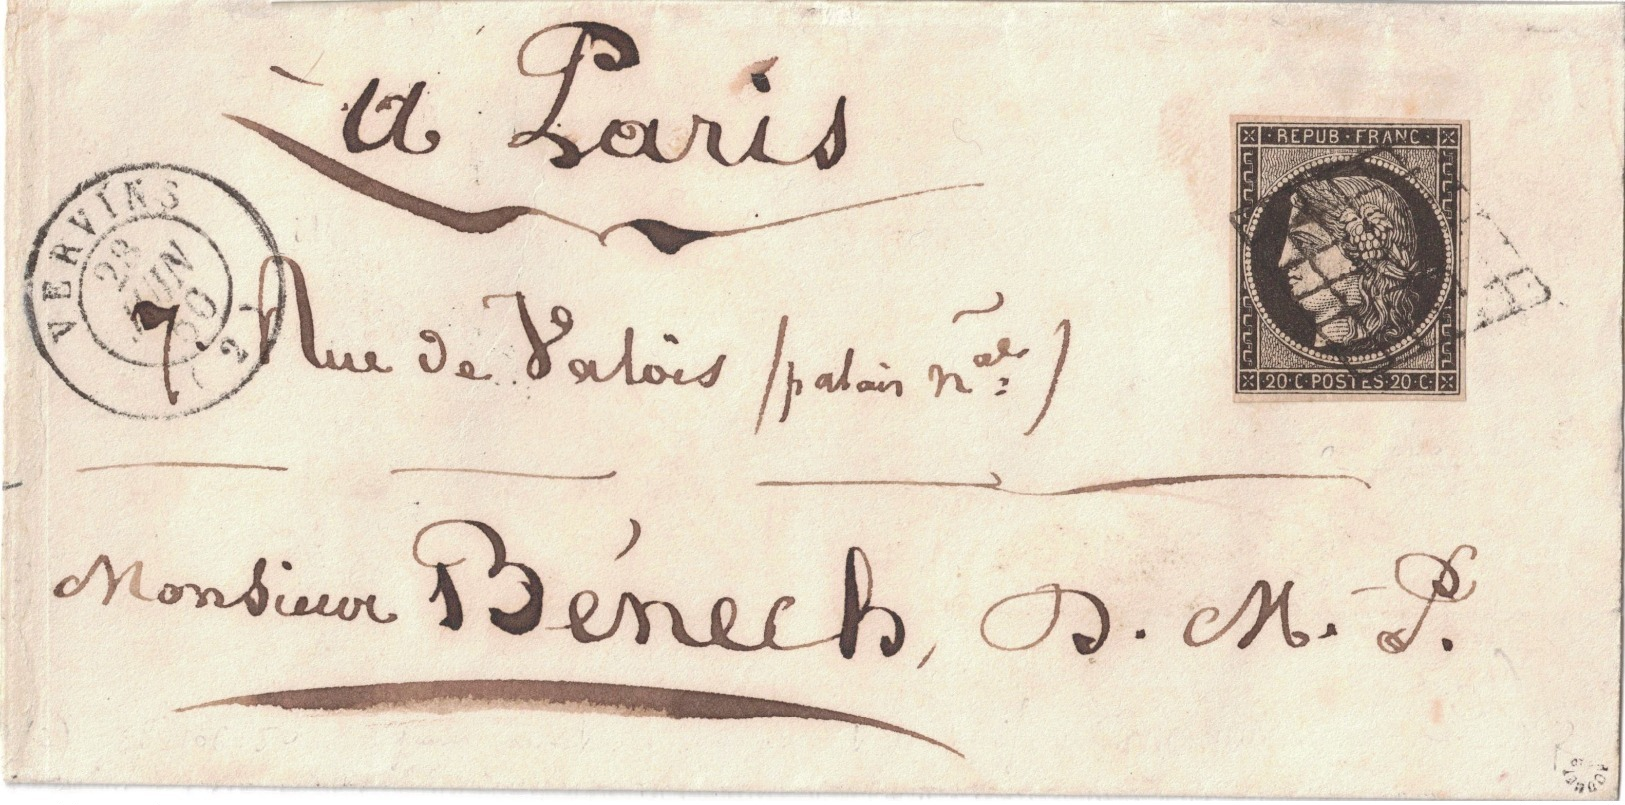 à Paris
REPUB·FRANC·
VERVINS
28
JUIN
50
(2)
7 Rue de Valois (palais n.al)
20·C·POSTES·20·C·
Monsieur Bénech, D. M. P.